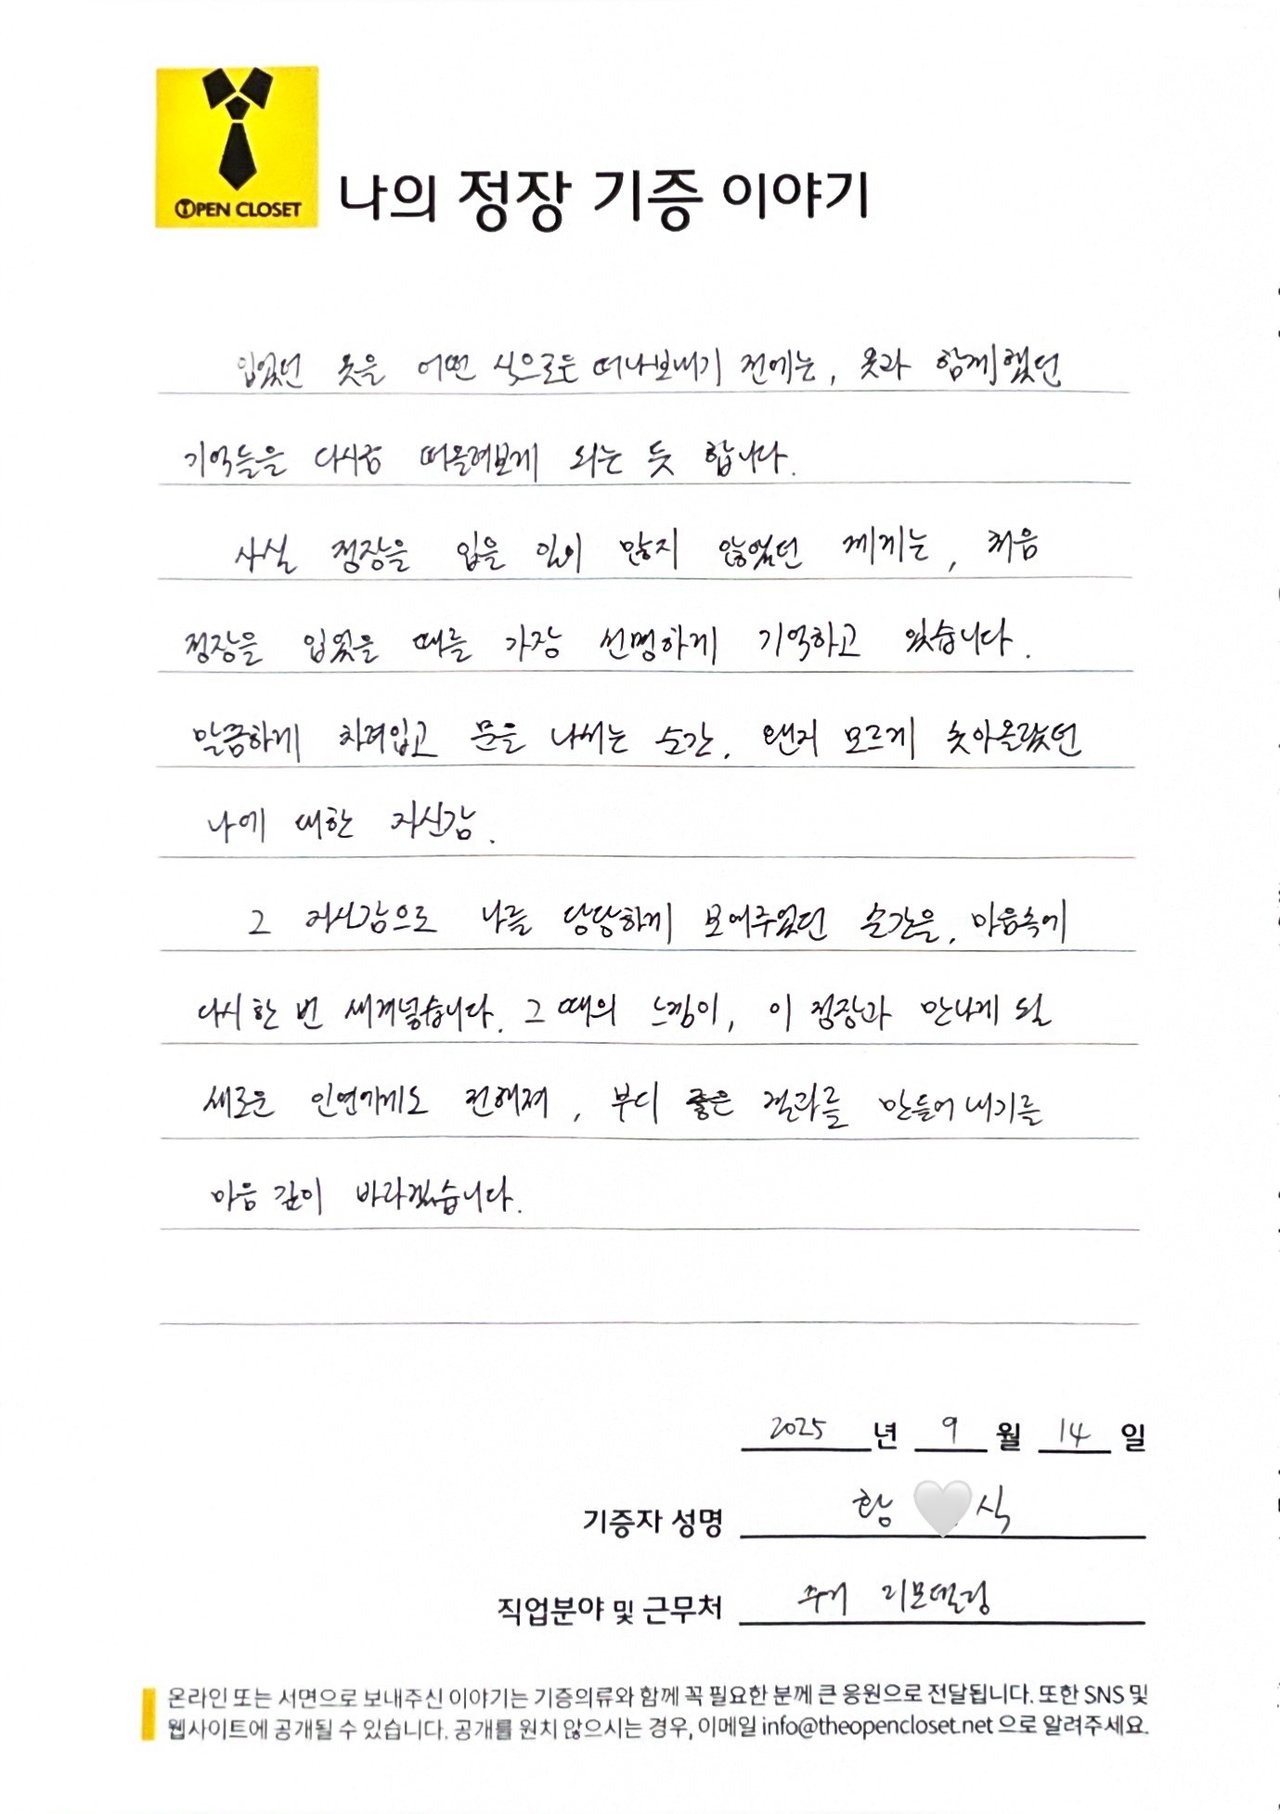 OPEN CLOSET
나의 정장 기증 이야기
입었던 옷을 어떤 식으로든 떠나보내기 전에는, 옷과 함께했던
기억들을 다시금 떠올려보게 되는 듯 합니다.
사실 정장을 입을 일이 많지 않았던 제게는, 처음
정장을 입었을 때를 가장 선명하게 기억하고 있습니다.
말끔하게 차려입고 문을 나서는 순간, 왠지 모르게 솟아올랐던
나에 대한 자신감.
그 자신감으로 나를 당당하게 보여주었던 순간을, 마음속에
다시 한 번 새겨넣습니다. 그 때의 느낌이, 이 정장과 만나게 될
새로운 인연에게도 전해져, 부디 좋은 결과를 만들어 내기를
마음 깊이 바라겠습니다.
2025 년 9 월 14 일
기증자 성명 함 식
직업분야 및 근무처 주거 리모델링
온라인 또는 서면으로 보내주신 이야기는 기증의류와 함께 꼭 필요한 분께 큰 응원으로 전달됩니다. 또한 SNS 및
웹사이트에 공개될 수 있습니다. 공개를 원치 않으시는 경우, 이메일 info@theopencloset.net 으로 알려주세요.